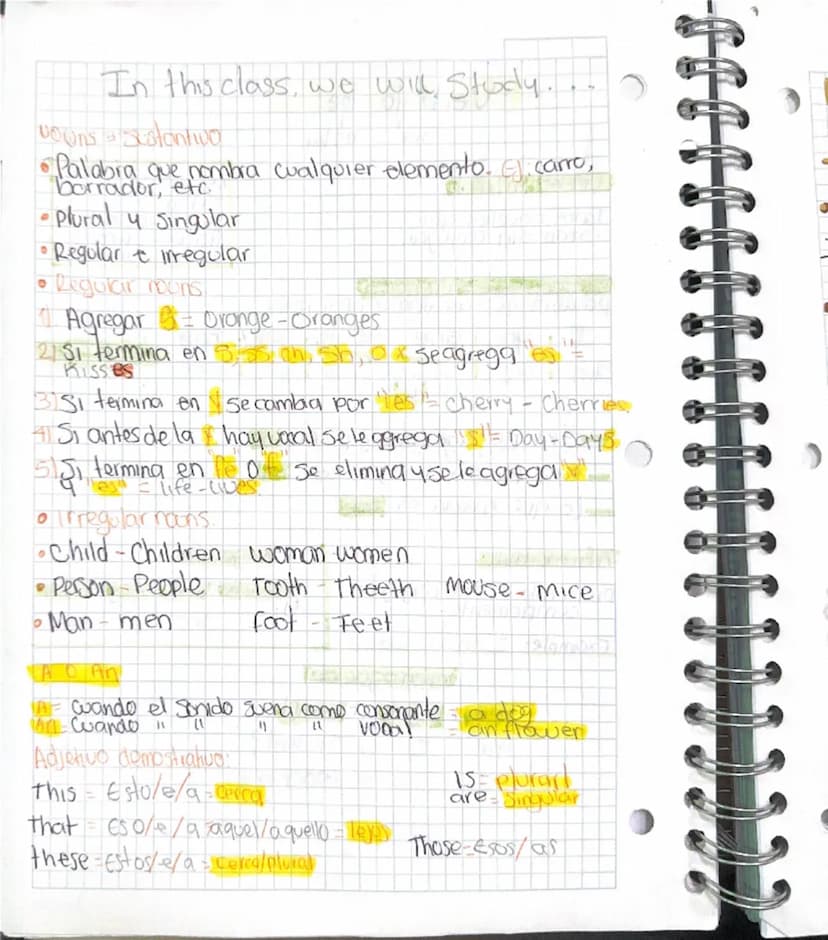 In this class, we will study...
nouns = sustantivo
• Palabra que nombra cualquier elemento. Ej. carro,
borrador, etc.
• Plural y singular
• Regular e irregular
• Regular nouns
1) Agregar s = Orange-Oranges
2) Si termina en s, ss, ch, sh, o x se agrega "es" =
kisses
3) Si termina en y se cambia por "ies" = cherry - cherries
4) Si antes de la y hay vocal se le agrega "s" = Day-Days
5) Si termina en "fe" o "f" se elimina y se le agrega v
y "es" = life-lives
• Irregular nouns
• Child - Children woman women
• Person - People Tooth - Theeth mouse - mice
• Man - men foot - Feet
A O An
A = cuando el sonido suena como consonante = a dog
An = Cuando " " " " vocal = an flower
Adjetivo demostrativo:
This = Esto/e/a = cerca
Is = plurarl
are = singular
That = ESO/e/a aquel/aquello = lejos
Those = Esos/as
these = Estos/e/a = cerca/plural